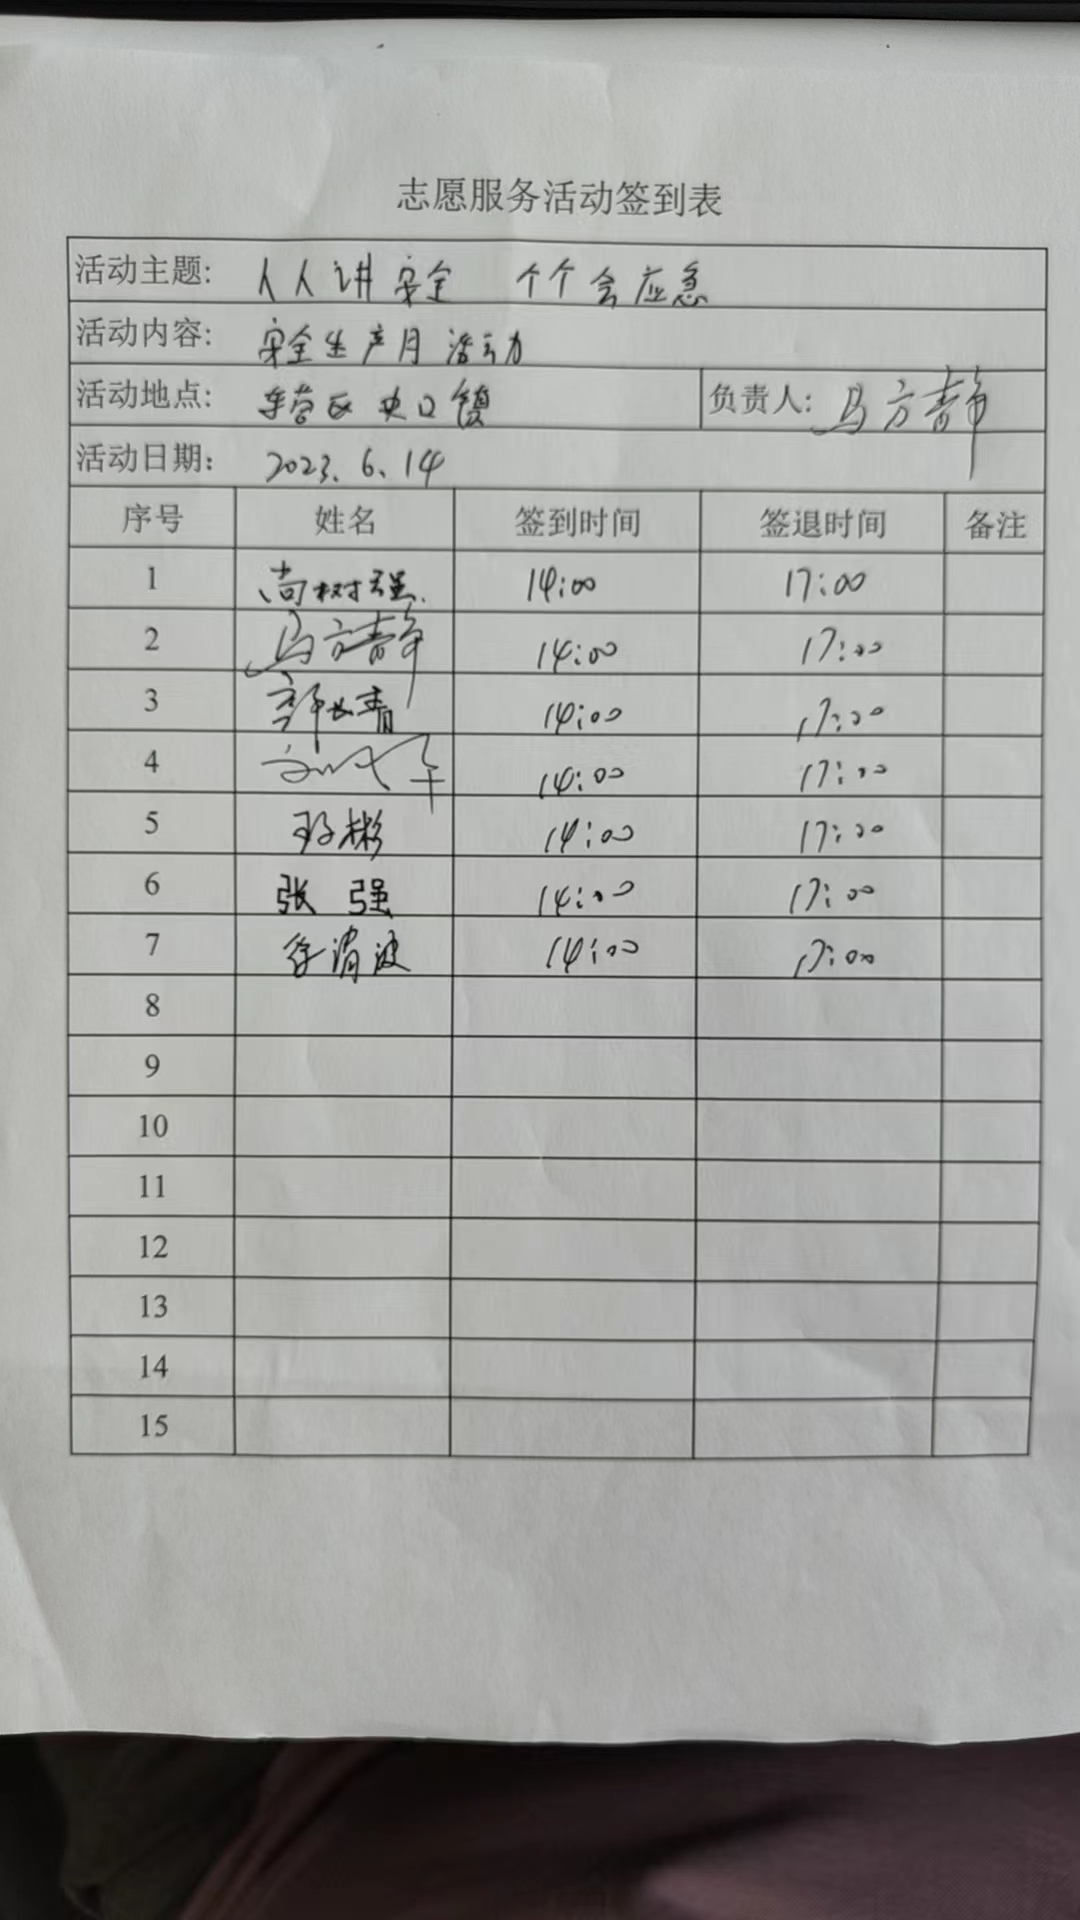 志愿服务活动签到表
活动主题: 人人讲安全 个个会应急
活动内容: 安全生产月活动
活动地点: 东营区史口镇 负责人: 马方静
活动日期: 2023.6.14
序号 姓名 签到时间 签退时间 备注
1 尚树强 14:00 17:00
2 马方静 14:00 17:00
3 14:00 17:00
4 14:00 17:00
5 14:00 17:00
6 张强 14:00 17:00
7 徐清波 14:00 17:00
8
9
10
11
12
13
14
15